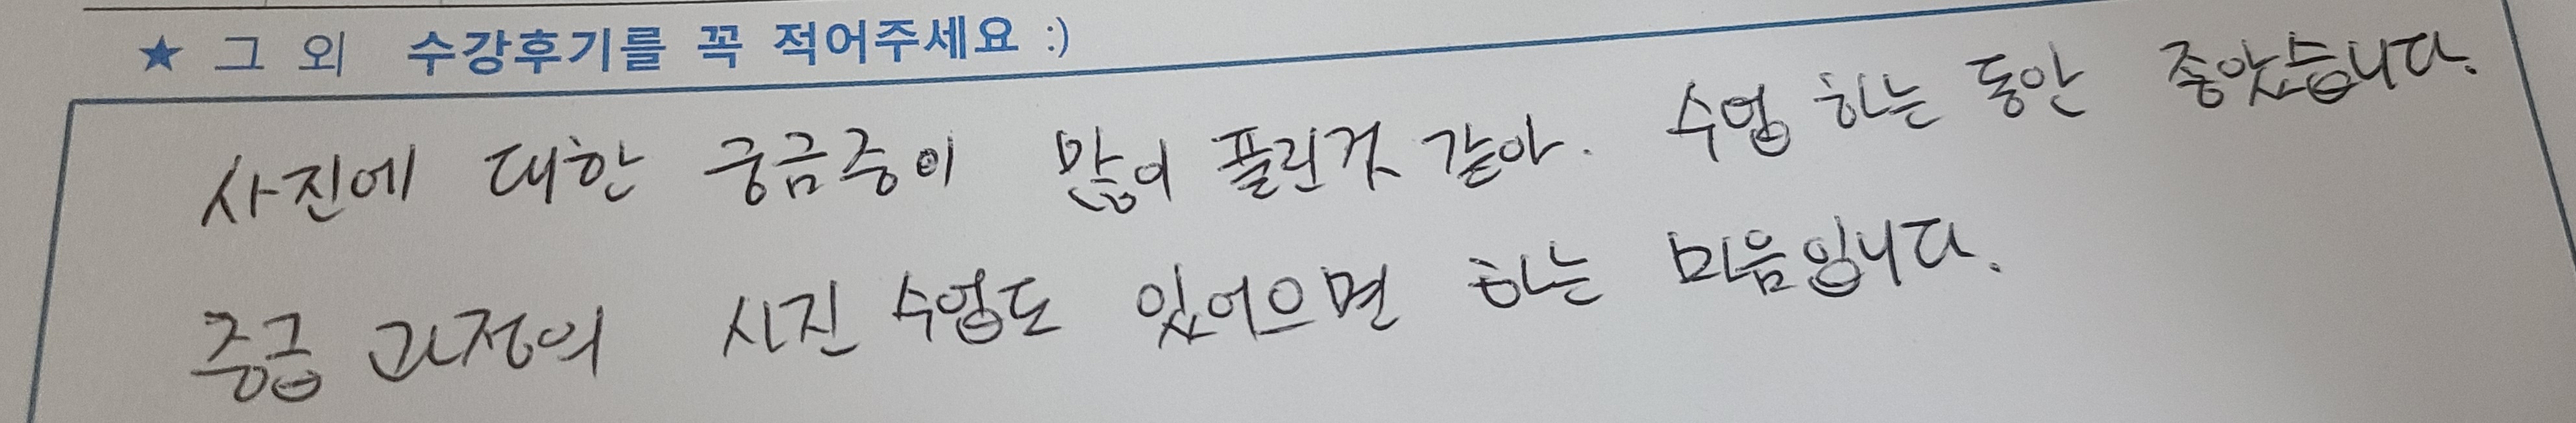 ★ 그 외 수강후기를 꼭 적어주세요 :)
사진에 대한 궁금중이 많이 풀린것 같아. 수업 하는 동안 좋았습니다.
중급 과정의 사진 수업도 있어으면 하는 마음입니다.